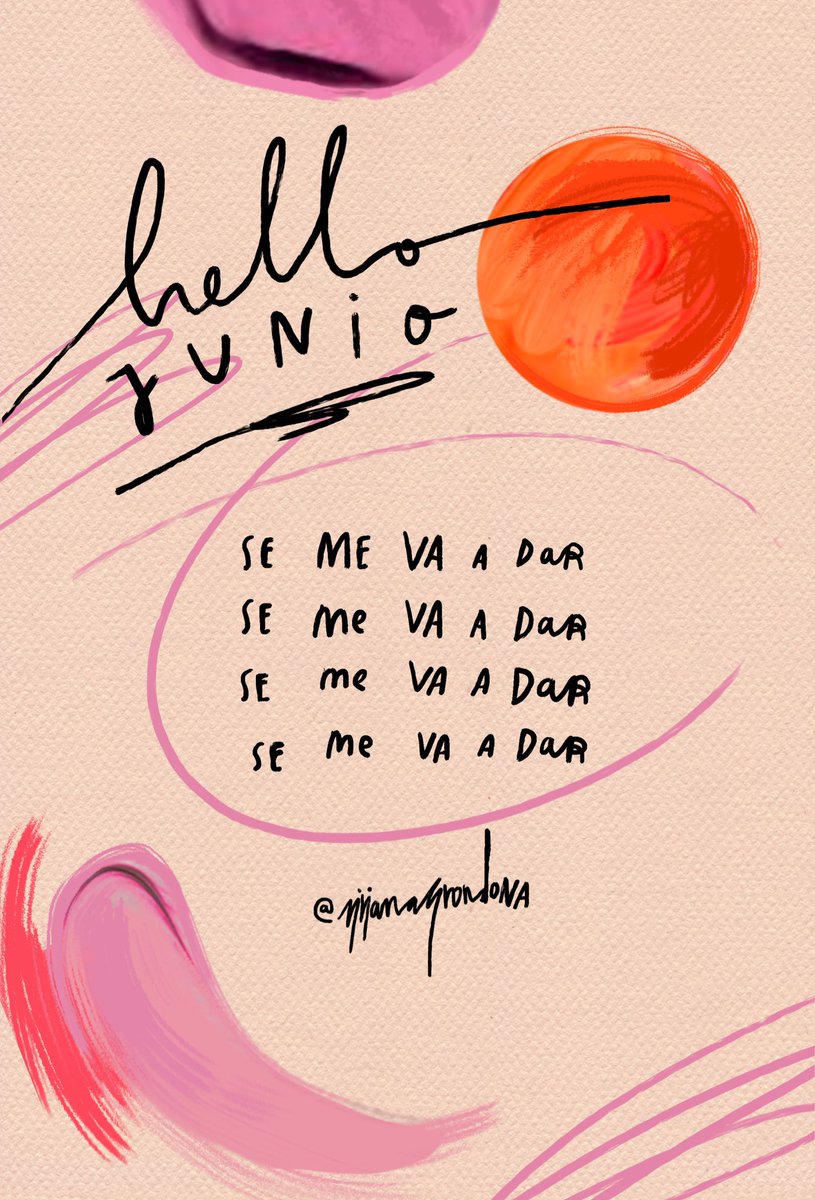 hello
JUNiO
SE ME VA A DaR
SE me VA A DaR
SE me VA A DaR
SE me VA A DaR